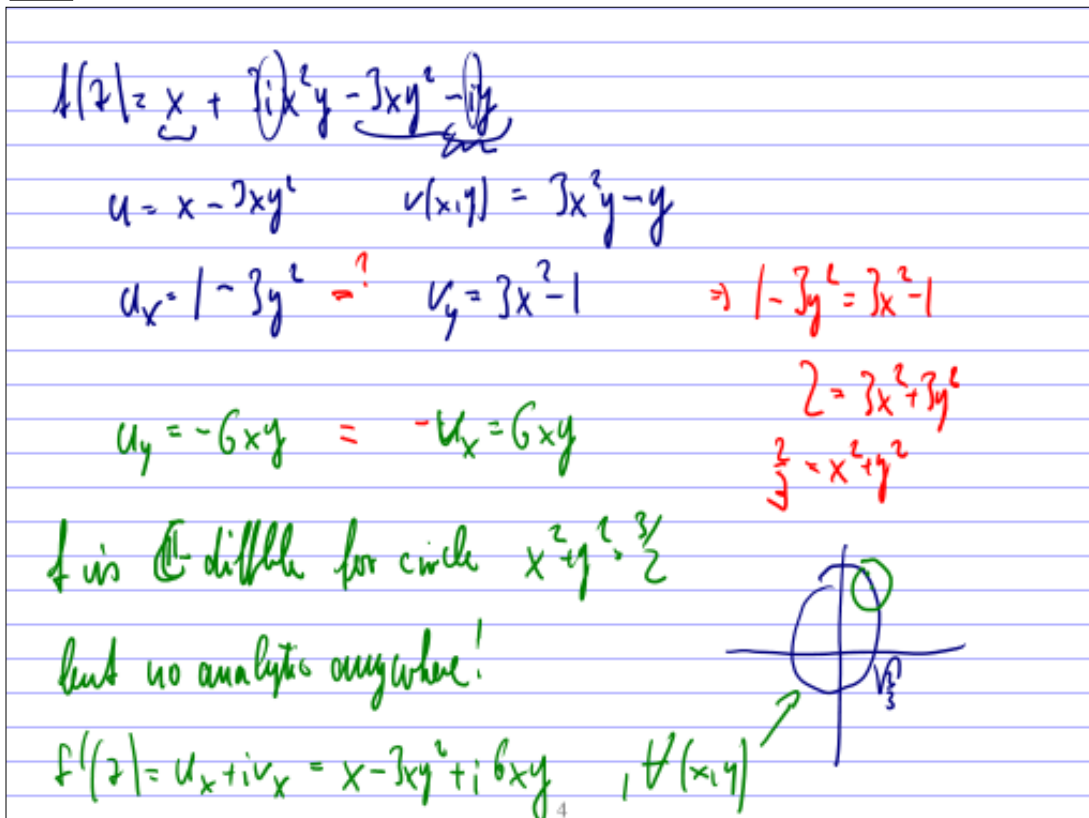 f(z) = x + 3ix²y - 3xy² - iy
u = x - 3xy² v(x,y) = 3x²y - y
u_x = 1 - 3y² =? v_y = 3x² - 1 ⇒ 1 - 3y² = 3x² - 1
2 = 3x² + 3y²
u_y = -6xy = -v_x = 6xy
2/3 = x² + y²
f is ℂ-diffble for circle x² + y² = 3/2
but no analytic anywhere!
√2/3
f'(z) = u_x + iv_x = x - 3xy² + i 6xy , ∀(x,y)
4